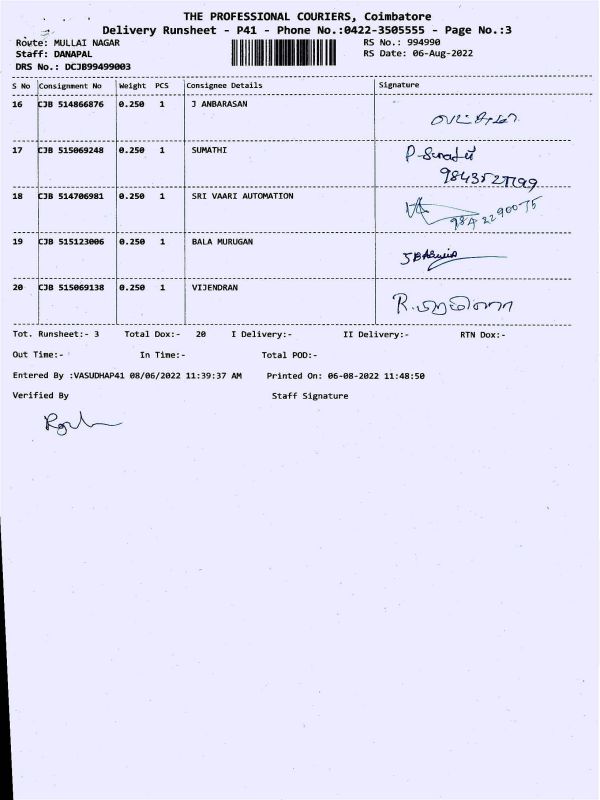 THE PROFESSIONAL COURIERS, Coimbatore
Delivery Runsheet - P41 - Phone No.:0422-3505555 - Page No.:3
Route: MULLAI NAGAR RS No.: 994990
Staff: DANAPAL RS Date: 06-Aug-2022
DRS No.: DCJB99499003
S No Consignment No Weight PCS Consignee Details Signature
16 CJB 514866876 0.250 1 J ANBARASAN
17 CJB 515069248 0.250 1 SUMATHI
18 CJB 514706981 0.250 1 SRI VAARI AUTOMATION
9842290075
19 CJB 515123006 0.250 1 BALA MURUGAN
20 CJB 515069138 0.250 1 VIJENDRAN
Tot. Runsheet:- 3 Total Dox:- 20 I Delivery:- II Delivery:- RTN Dox:-
Out Time:- In Time:- Total POD:-
Entered By :VASUDHAP41 08/06/2022 11:39:37 AM Printed On: 06-08-2022 11:48:50
Verified By Staff Signature